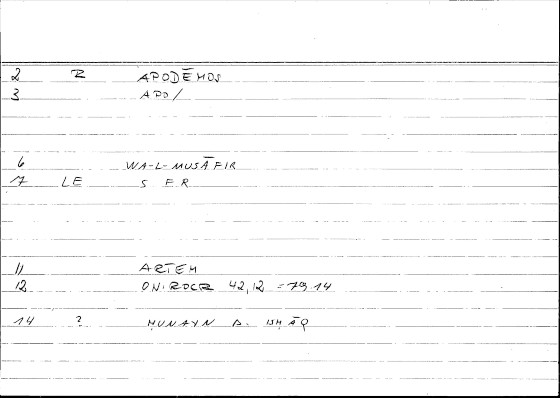 2 R APODĒMOS
3 APO/
6 WA-L-MUSĀFIR
7 LE S F R
11 ARTEM
12 ONIROCR 42,12 = 79,14
14 ? ḤUNAYN B. ISḤĀQ